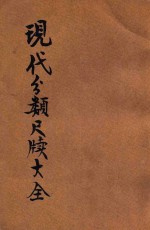 現代分類尺牘大全